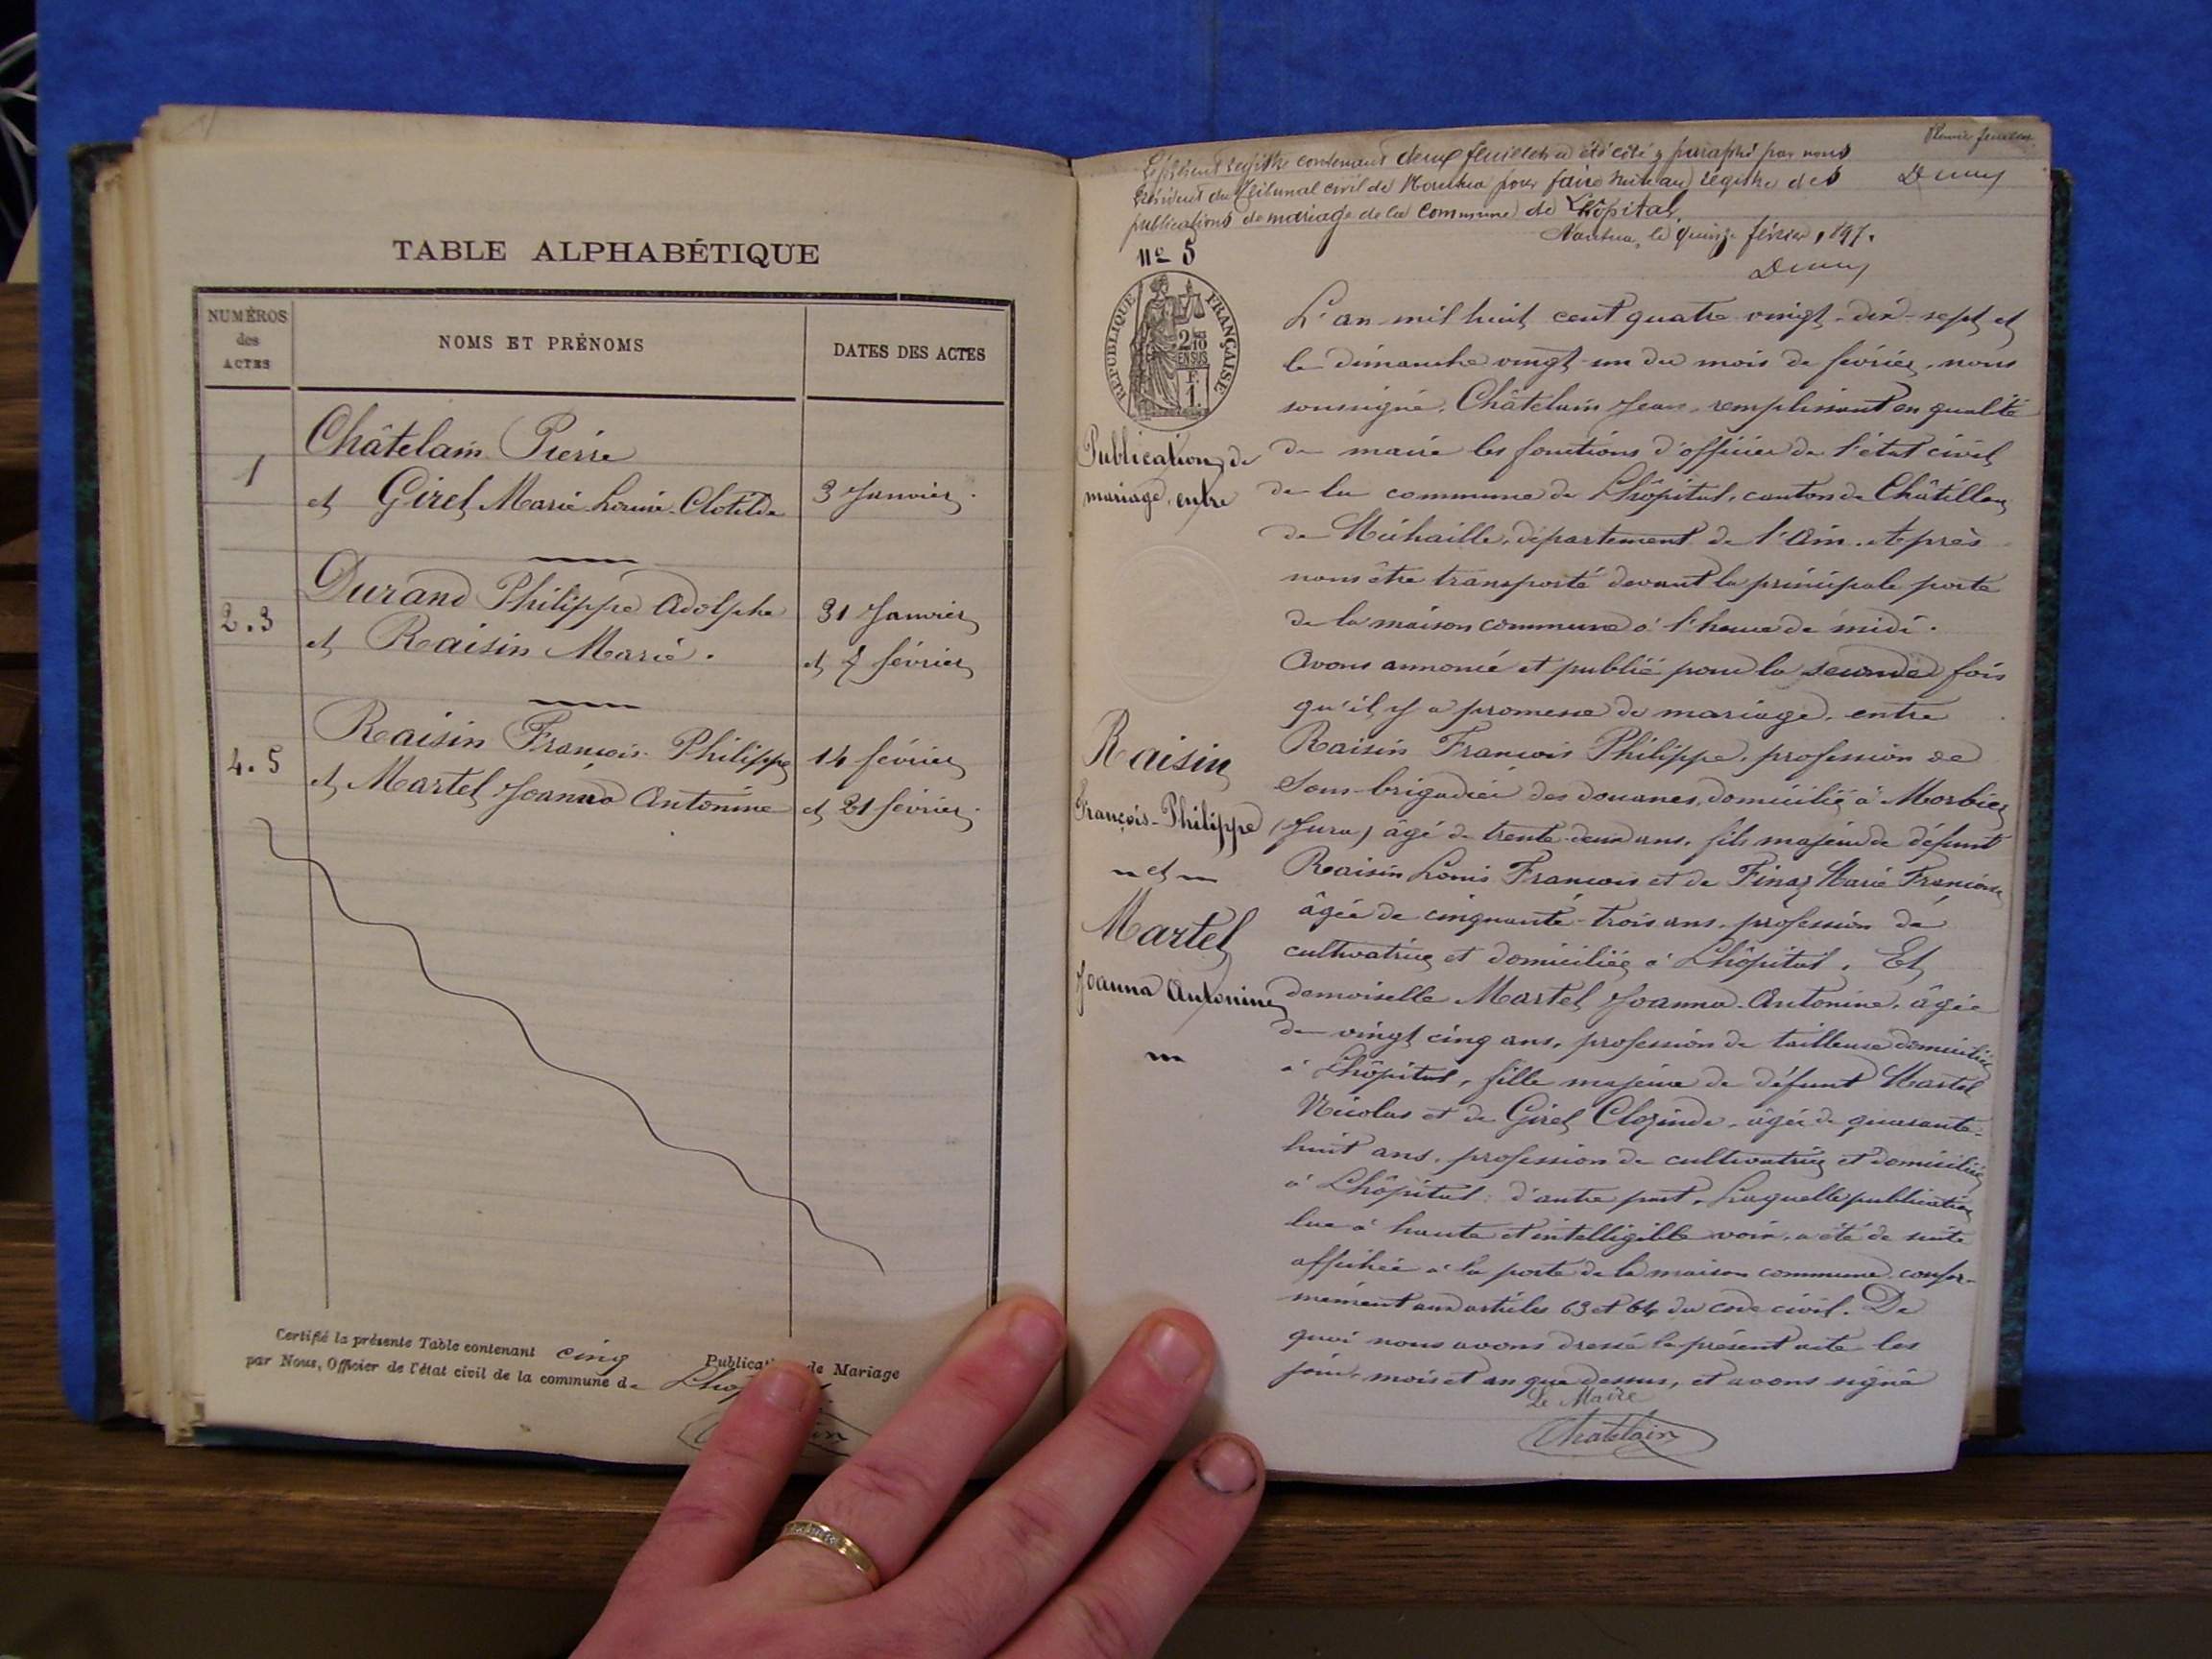 TABLE ALPHABÉTIQUE
NUMÉROS des ACTES
NOMS ET PRÉNOMS
DATES DES ACTES
1
Châtelain Pierre
et Girel Marie Louise Clotilde
3 Janvier.
2.3
Durand Philippe Adolphe
31 Janvier
et Raisin Marie.
et 7 février
4.5
Raisin François Philippe
14 février
et Martel Joanna Antonine
et 21 février.
Certifié la présente Table contenant cinq Publicat de Mariage
par Nous, Officier de l'état civil de la commune de
Le présent registre contenant deux feuillets a été coté & paraphé par nous
Président du Tribunal civil de Nantua pour faire suite au registre des
publications de mariage de la commune de Lhôpital
Nantua, le quinze février 1897.
Premier feuillet
n° 5
RÉPUBLIQUE FRANÇAISE
2/10 EN SUS
F. 1.
Publication de
mariage, entre
Raisin
François-Philippe
et
Martel
Joanna Antonine
L'an mil huit cent quatre vingt-dix-sept et
le dimanche vingt-un du mois de février, nous
soussigné, Châtelain Jean, remplissant en qualité
de maire les fonctions d'officier de l'état civil
de la commune de Lhôpital, canton de Châtillon
de Michaille, département de l'Ain. Après
nous être transporté devant la principale porte
de la maison commune à l'heure de midi.
Avons annoncé et publié pour la seconde fois
qu'il y a promesse de mariage, entre
Raisin François Philippe, profession de
Sous-brigadier des douanes, domicilié à Morbier
(Jura) âgé de trente-deux ans, fils majeur de défunt
Raisin Louis François et de Finaz Marie Françoise
âgée de cinquante-trois ans, profession de
cultivatrice et domiciliée à Lhôpital. Et
demoiselle Martel Joanna-Antonine, âgée
de vingt cinq ans, profession de tailleuse domiciliée
à Lhôpital, fille majeure de défunt Martel
Nicolas et de Girel Clozinde, âgée de quarante-
huit ans, profession de cultivatrice et domiciliée
à Lhôpital; d'autre part, Laquelle publication
lue à haute et intelligible voix, a été de suite
affichée à la porte de la maison commune, confor-
mément aux articles 63 et 64 du code civil. De
quoi nous avons dressé le présent acte les
jour, mois et an que dessus, et avons signé
Le Maire
Chatelain